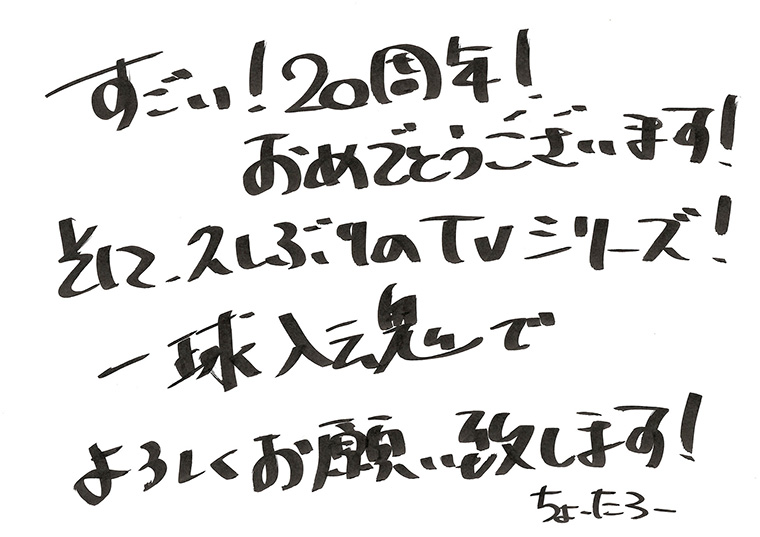 すごい!20周年!
おめでとうございます!
そして、久しぶりのTVシリーズ!
一球入魂で
よろしくお願い致します!
ちょーたろー